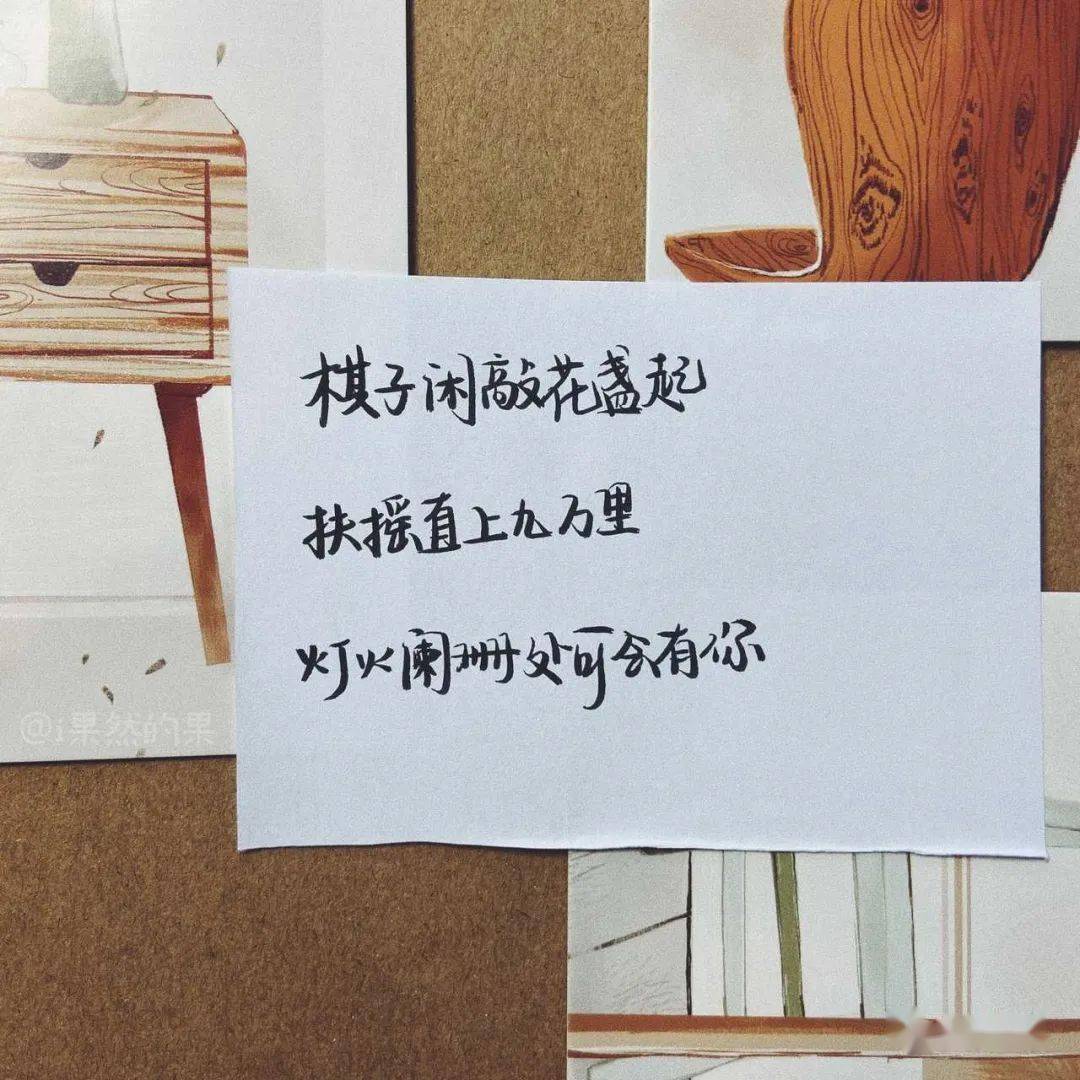 棋子闲敲花盏起
扶摇直上九万里
灯火阑珊处可会有你
@i果然的果